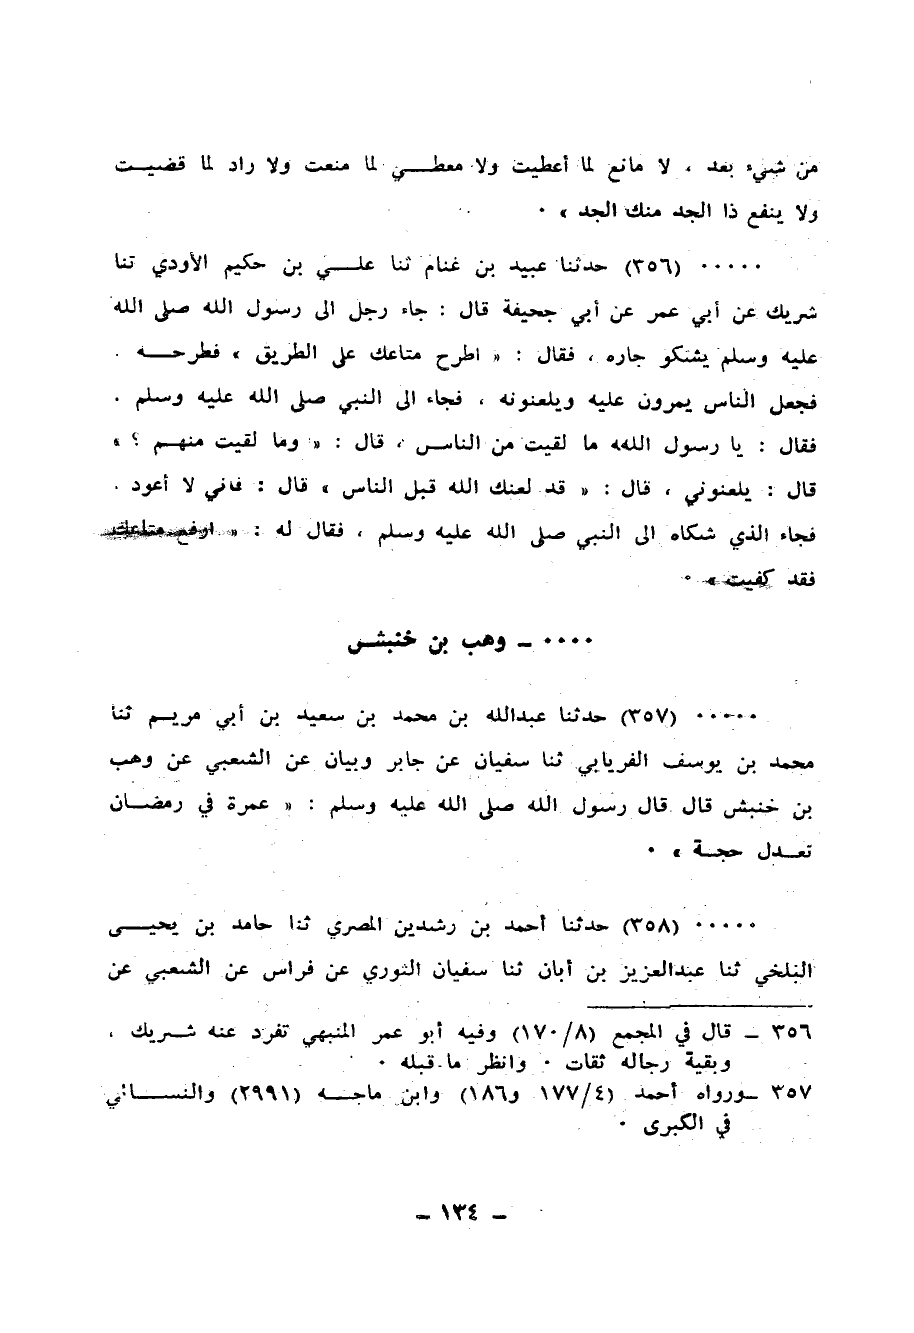 من شيء بعد ، لا مانع لما أعطيت ولا معطي لما منعت ولا راد لما قضيت
ولا ينفع ذا الجد منك الجد » ٠
٠٠٠٠٠ (٣٥٦) حدثنا عبيد بن غنام ثنا علي بن حكيم الأودي ثنا
شريك عن أبي عمر عن أبي جحيفة قال : جاء رجل الى رسول الله صلى الله
عليه وسلم يشكو جاره ، فقال : « اطرح متاعك على الطريق » فطرحه .
فجعل الناس يمرون عليه ويلعنونه ، فجاء الى النبي صلى الله عليه وسلم .
فقال : يا رسول الله ما لقيت من الناس ، قال : « وما لقيت منهم ؟ »
قال : يلعنوني ، قال : « قد لعنك الله قبل الناس » قال : فاني لا أعود .
فجاء الذي شكاه الى النبي صلى الله عليه وسلم ، فقال له : « ارفع متاعك
فقد كفيت » ٠
٠٠٠٠ ـ وهب بن خنبش
٠٠٠٠٠ (٣٥٧) حدثنا عبدالله بن محمد بن سعيد بن أبي مريم ثنا
محمد بن يوسف الفريابي ثنا سفيان عن جابر وبيان عن الشعبي عن وهب
بن خنبش قال قال رسول الله صلى الله عليه وسلم : « عمرة في رمضان
تعدل حجة » ٠
٠٠٠٠٠ (٣٥٨) حدثنا أحمد بن رشدين المصري ثنا حامد بن يحيى
البلخي ثنا عبدالعزيز بن أبان ثنا سفيان الثوري عن فراس عن الشعبي عن
٣٥٦ ـ قال في المجمع (١٧٠/٨) وفيه أبو عمر المنبهي تفرد عنه شريك ،
وبقية رجاله ثقات ٠ وانظر ما قبله ٠
٣٥٧ ـ ورواه أحمد (١٧٧/٤ و١٨٦) وابن ماجه (٢٩٩١) والنسائي
في الكبرى ٠
ـ ١٣٤ ـ